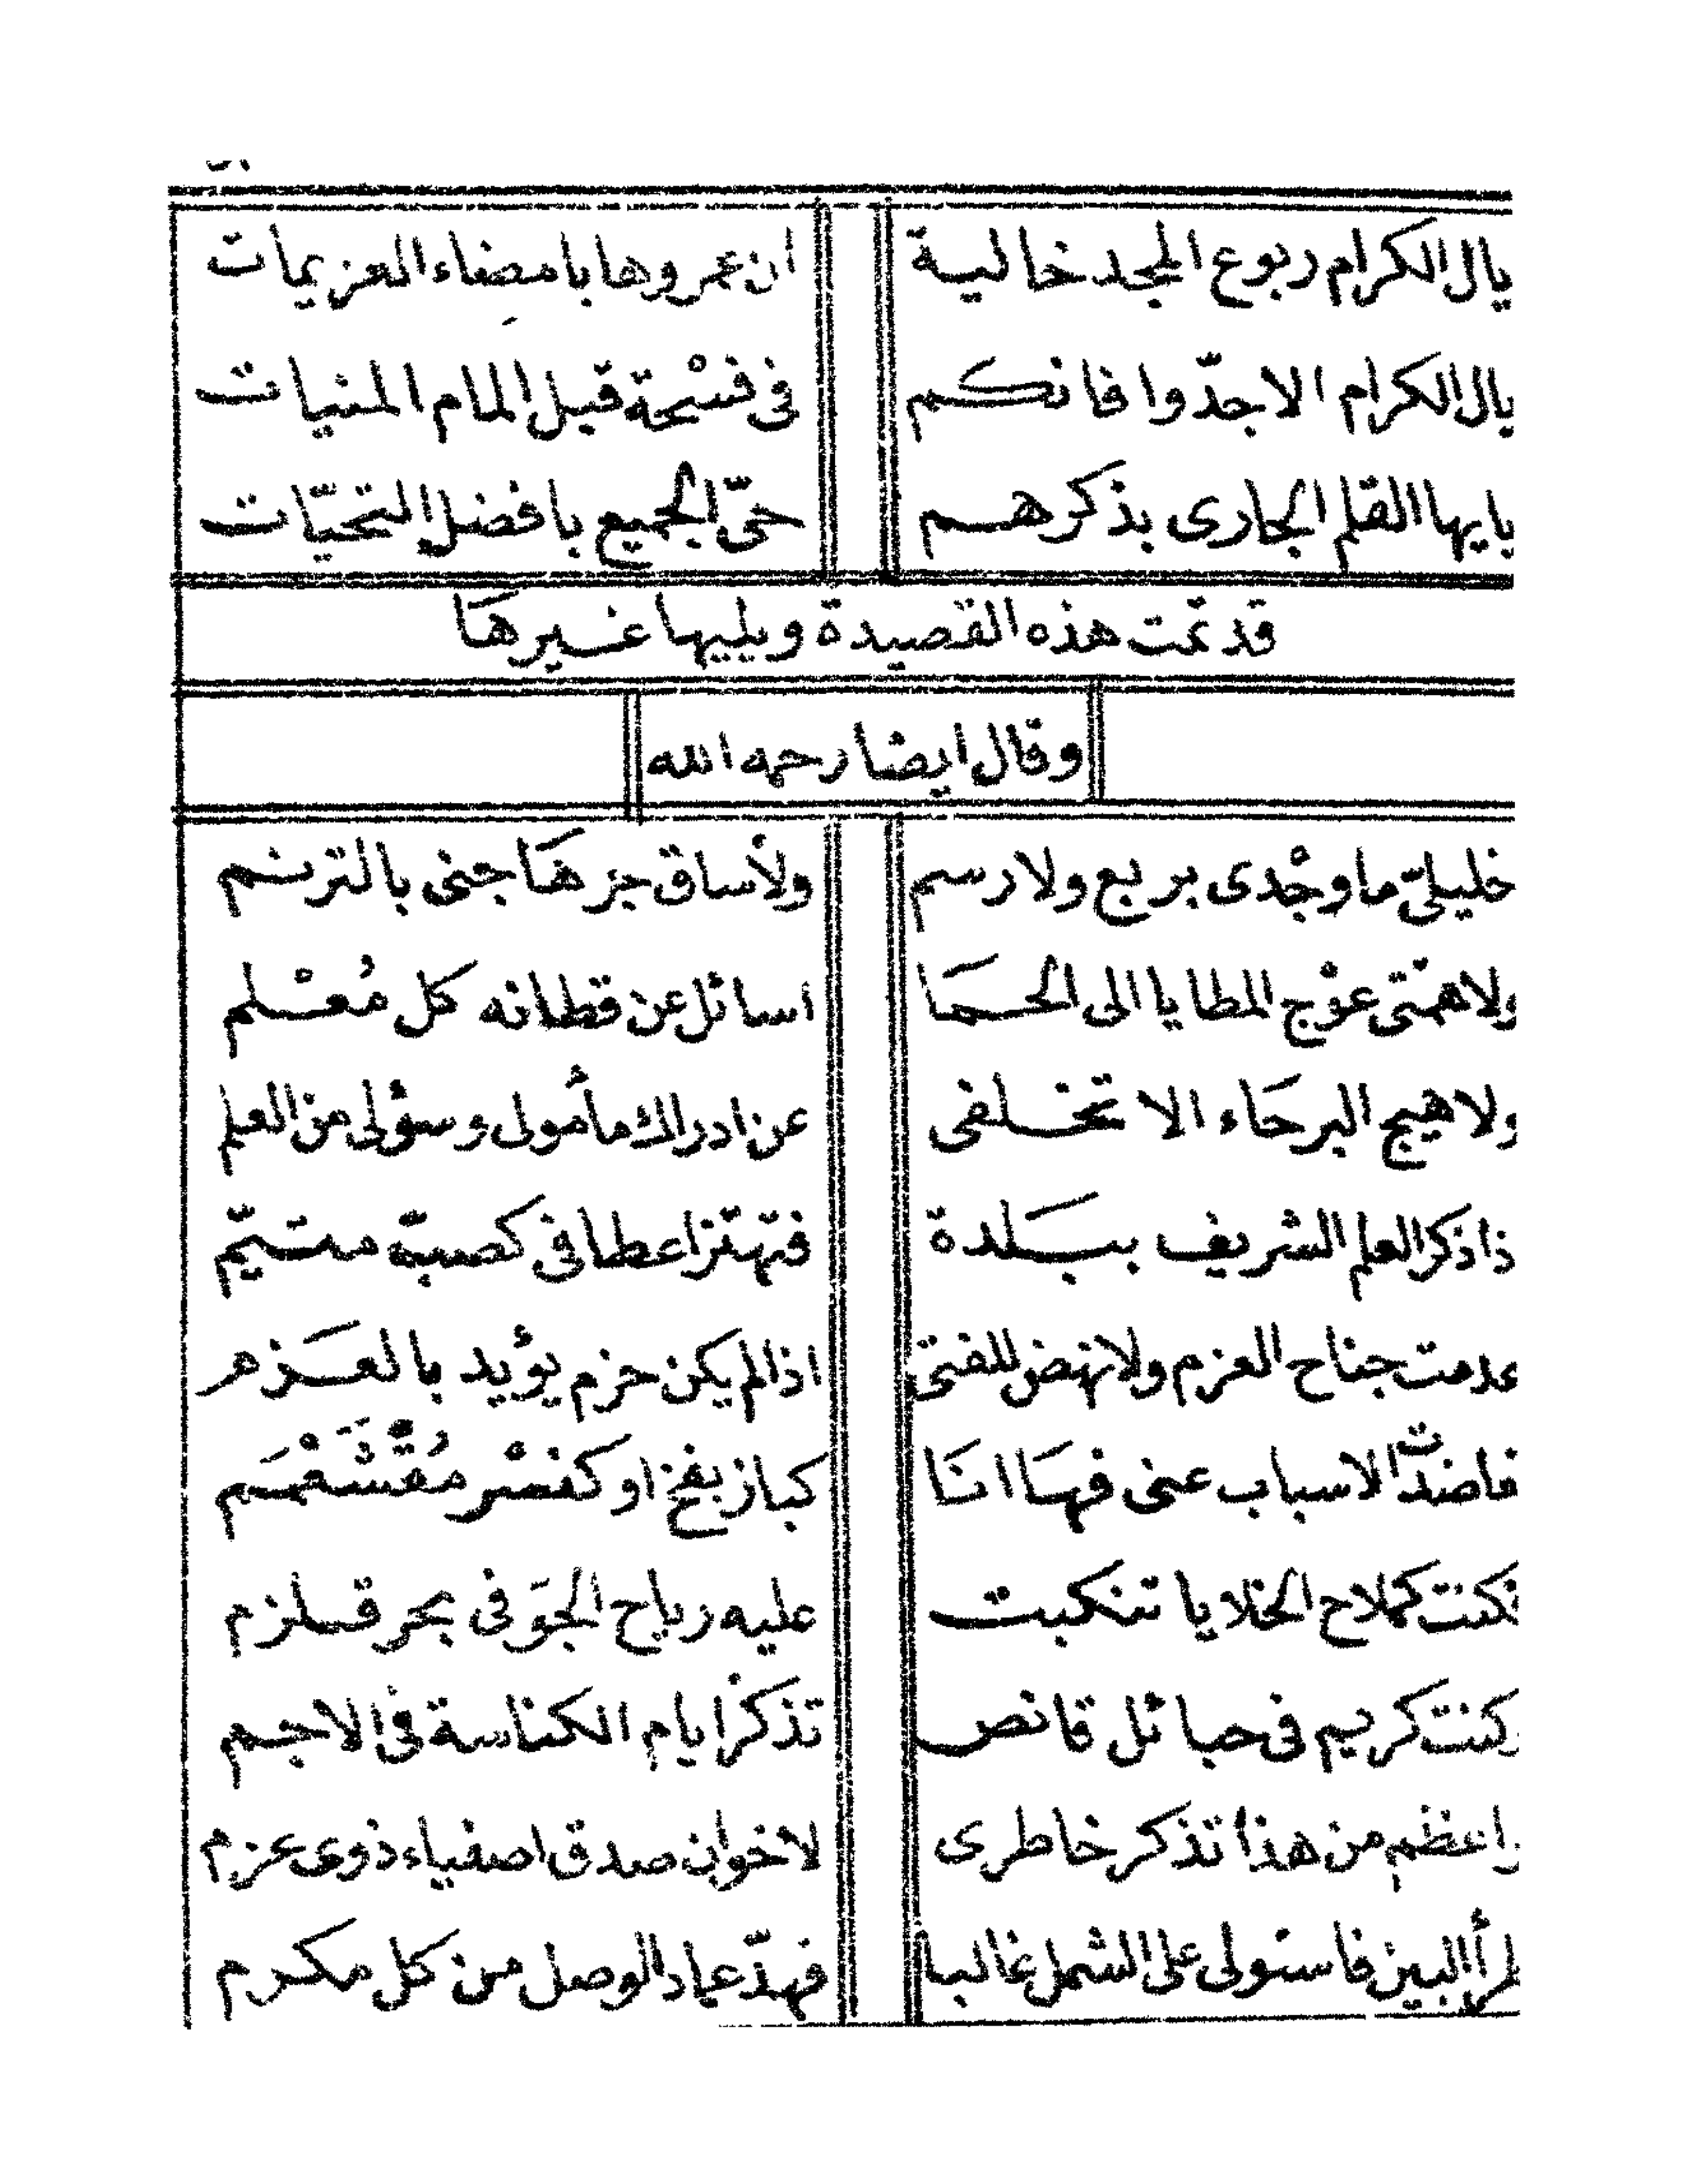 يال الكرام ربوع المجد خالية ان عمروها بامضاء العزيمات
يال الكرام الا جدّوا فانكم فى فسْحة قبل المام المنيات
يايها القلم الجارى بذكرهم حىّ الجميع بافضل التحيّات
قد تمت هذه القصيدة ويليها غيرها
وقال ايضا رحمه الله
خليلىّ ما وجْدى بربع ولا رسم ولأساق جرهَا جنى بالترنم
ولا همّتى عوْج المطايا الى الحمَا اسائل عن قطانه كل مُعْلم
ولا هيج البرحَاء الا تخلفى عن ادراك مأمولى وسؤلى من العلم
ذا ذكر العلم الشريف ببَلدة فتهتز اعطافى كصبّ متيّم
عدمت جناح العزم ولا نهض للفتى اذا لم يكن حزم يؤيد بالعَزم
فاضت الاسباب عنى فهَا انَا كباز بفخ او كنسْر مُقْشَعْم
فكنت كملاح الخلايا تنكبت عليه رياح الجوَ فى بحر قلزم
وكنت كريم فى حبائل قانص تذكر ايام الكناسة فى الاجم
واعظم من هذا تذكر خاطرى لاخوان صدق اصفياء ذوى عزم
البين فاستولى على الشمل غالبا فهدّ عماد الوصل من كل مكرم